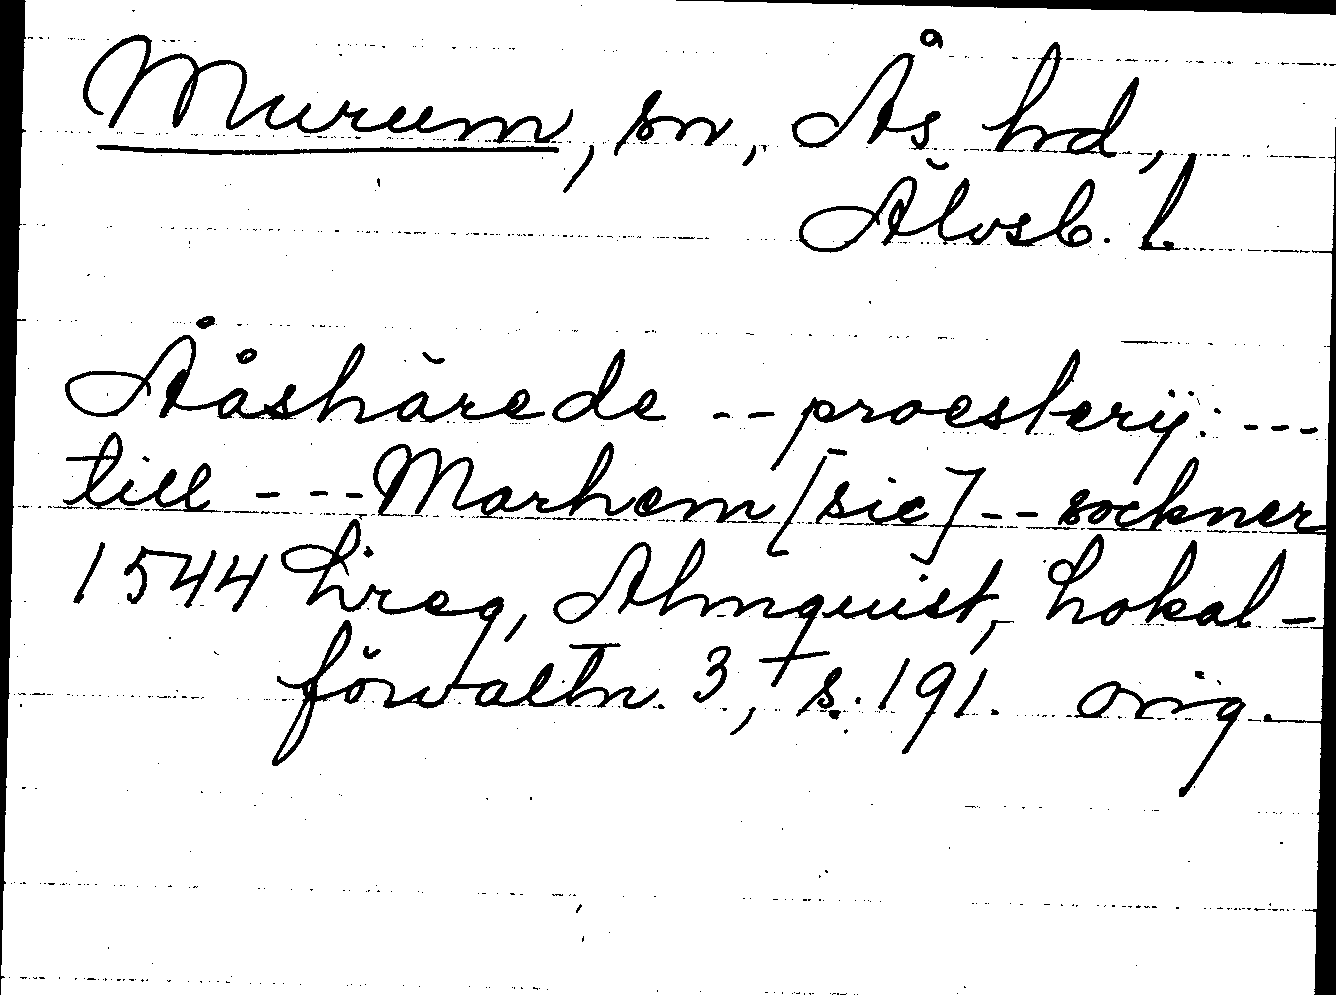 Murum, sn, Ås hd,
Älvsb. l.
Ååshärede -- proesterij: ---
till --- Marhem [sic] -- sockner
1544 Lreg, Almquist, Lokal-
förvaltn. 3, s. 191. orig.